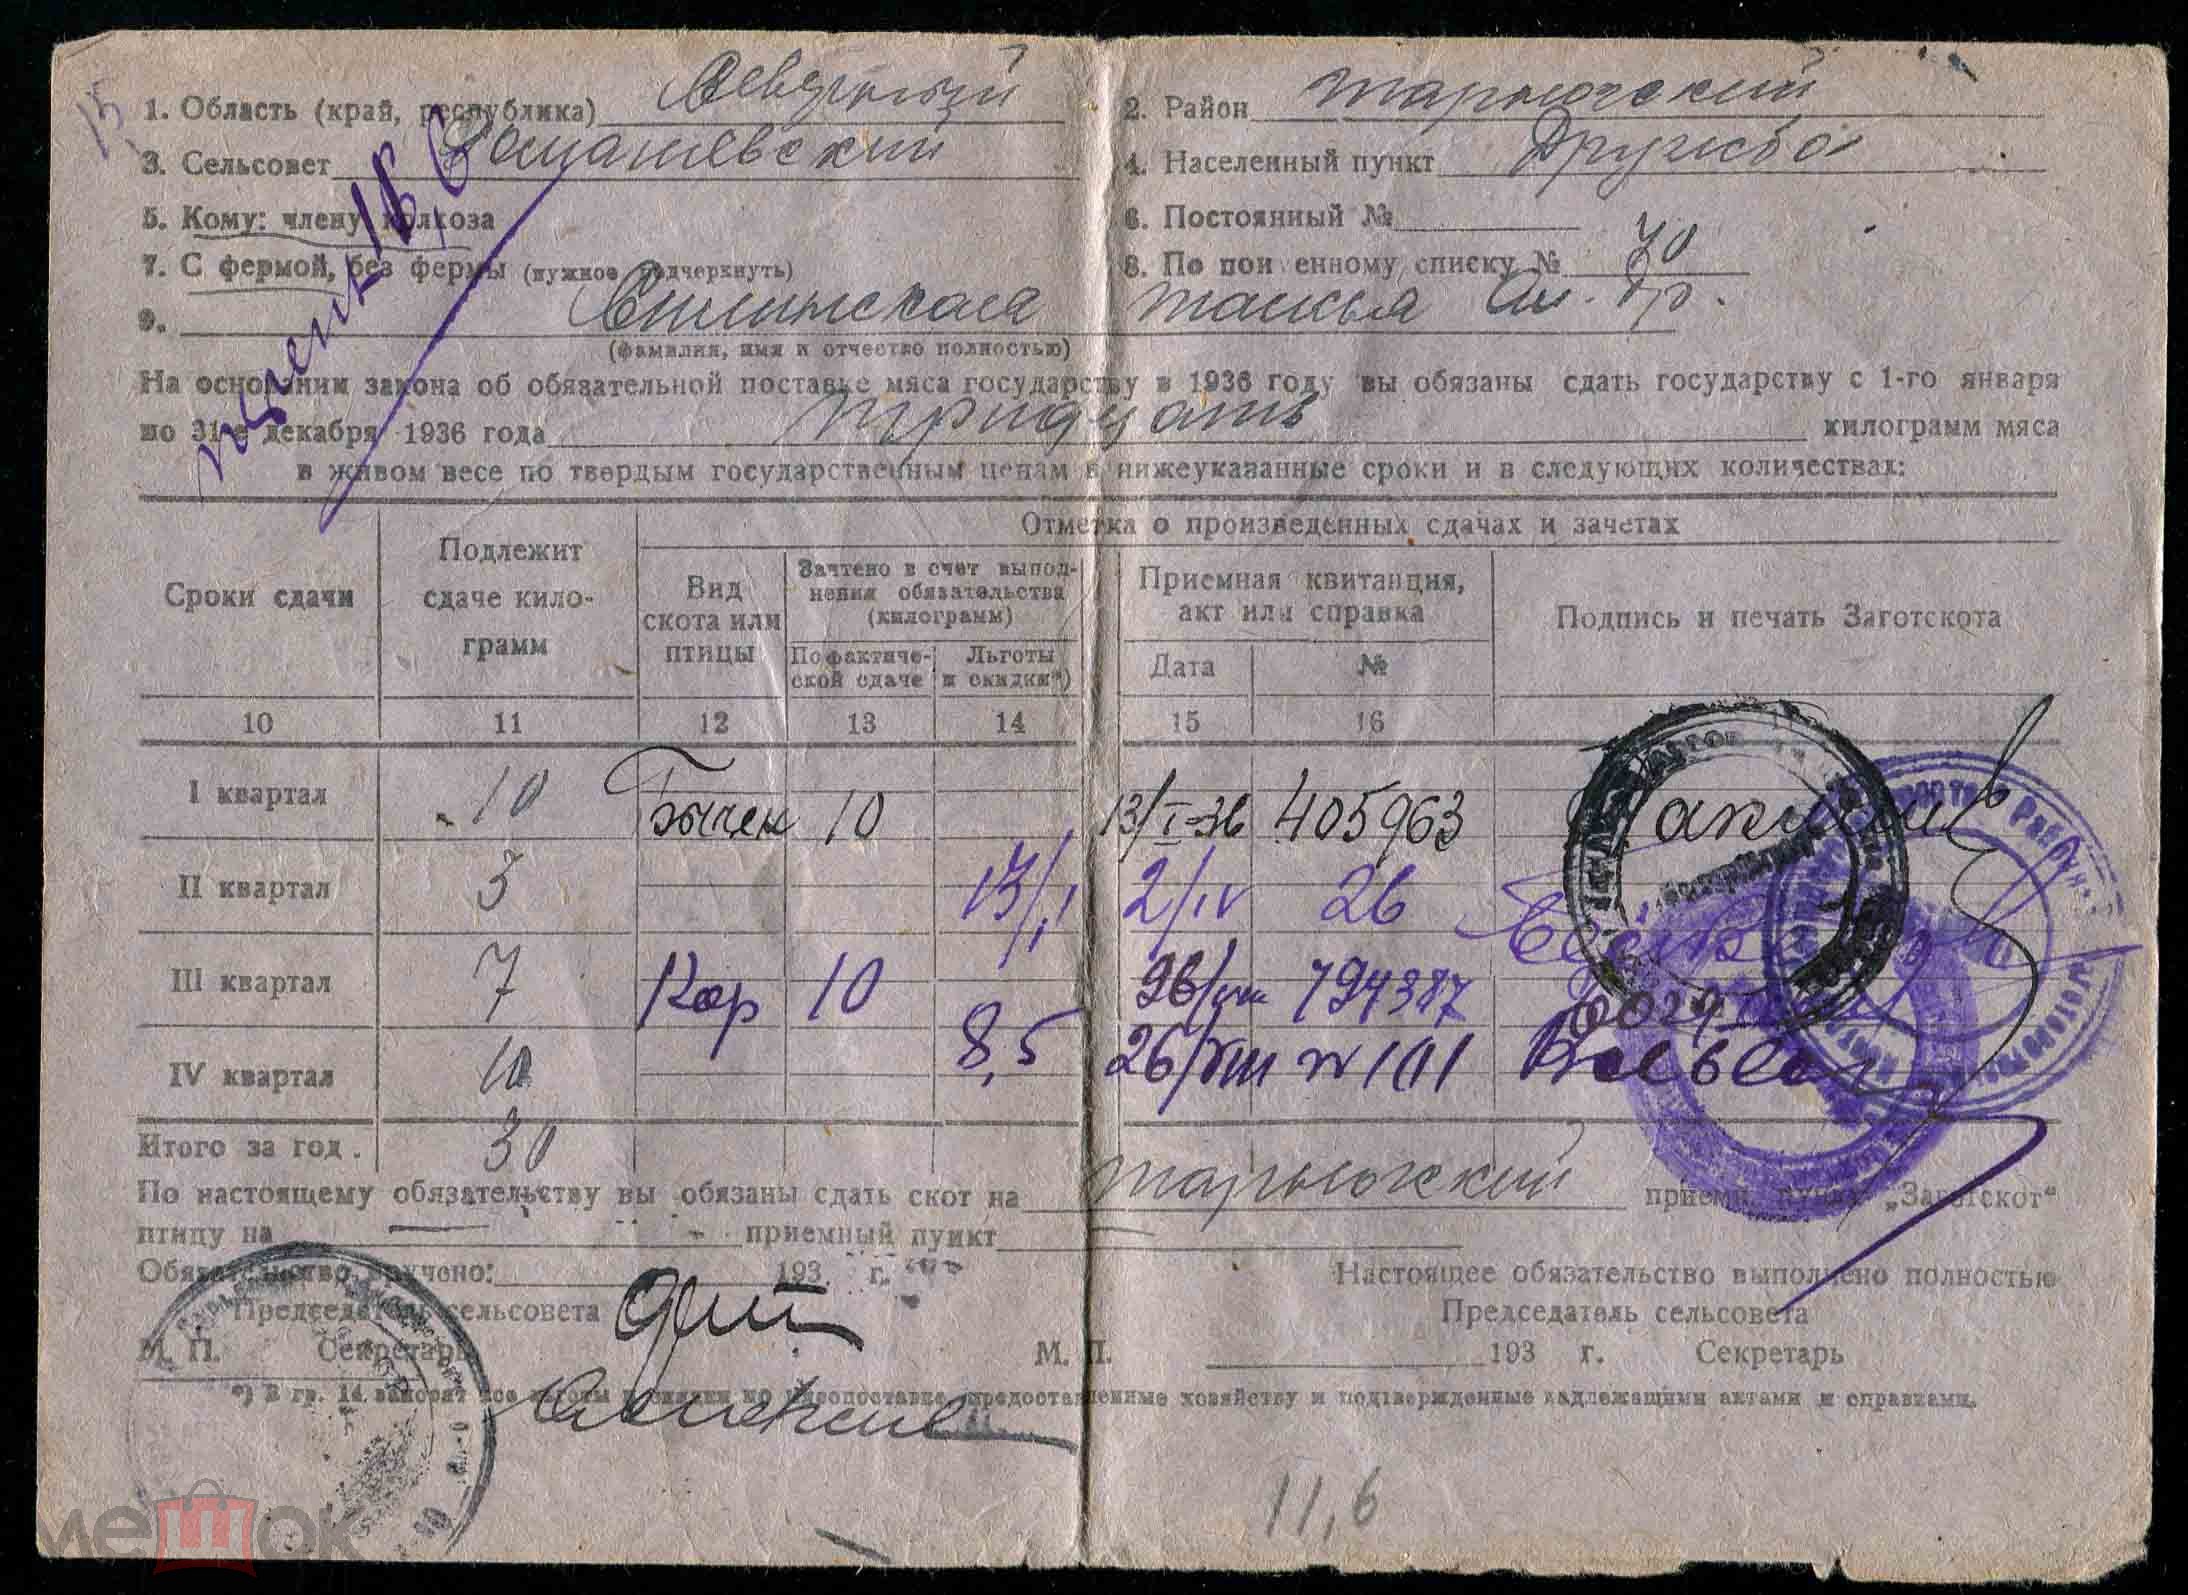 15
1. Область (край, республика) Северный
2. Район Тарногский
3. Сельсовет Ромашевский
4. Населенный пункт Дружба
5. Кому: члену колхоза
6. Постоянный №
7. С фермой, без фермы (нужное подчеркнуть)
8. По поименному списку № 70
9. Силинская Таисья Ал. др.
(фамилия, имя и отчество полностью)
На основании закона об обязательной поставке мяса государству в 1936 году вы обязаны сдать государству с 1-го января
по 31-е декабря 1936 года тридцать килограмм мяса
в живом весе по твердым государственным ценам в нижеуказанные сроки и в следующих количествах:
Сроки сдачи
Подлежит сдаче килограмм
Отметка о произведенных сдачах и зачетах
Вид скота или птицы
Зачтено в счет выполнения обязательства (килограмм)
По фактической сдаче
Льготы и скидки*)
Приемная квитанция, акт или справка
Дата
№
Подпись и печать Заготскота
10 11 12 13 14 15 16
I квартал 10 Бычек 10 13/I-36 405963
II квартал 3 13/I 2/IV 26
III квартал 7 Кор 10 26/VIII 794387
IV квартал 10 8,5 26/VIII №101
Итого за год. 30
По настоящему обязательству вы обязаны сдать скот на Тарногский приемн. пункт „Заготскот“
птицу на — приемный пункт —
Обязательство вручено: 193 г.
Настоящее обязательство выполнено полностью
Председатель сельсовета
Председатель сельсовета
М. П. Секретарь
М. П. 193 г. Секретарь
*) В гр. 14 заносят все льготы и скидки по мясопоставке, предоставленные хозяйству и подтвержденные надлежащими актами и справками.
11,6
мешок